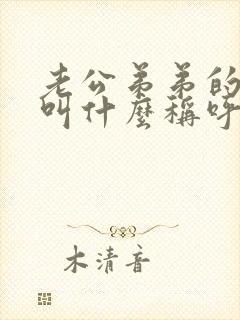 老公弟弟的
叫什麼稱呼
木清音